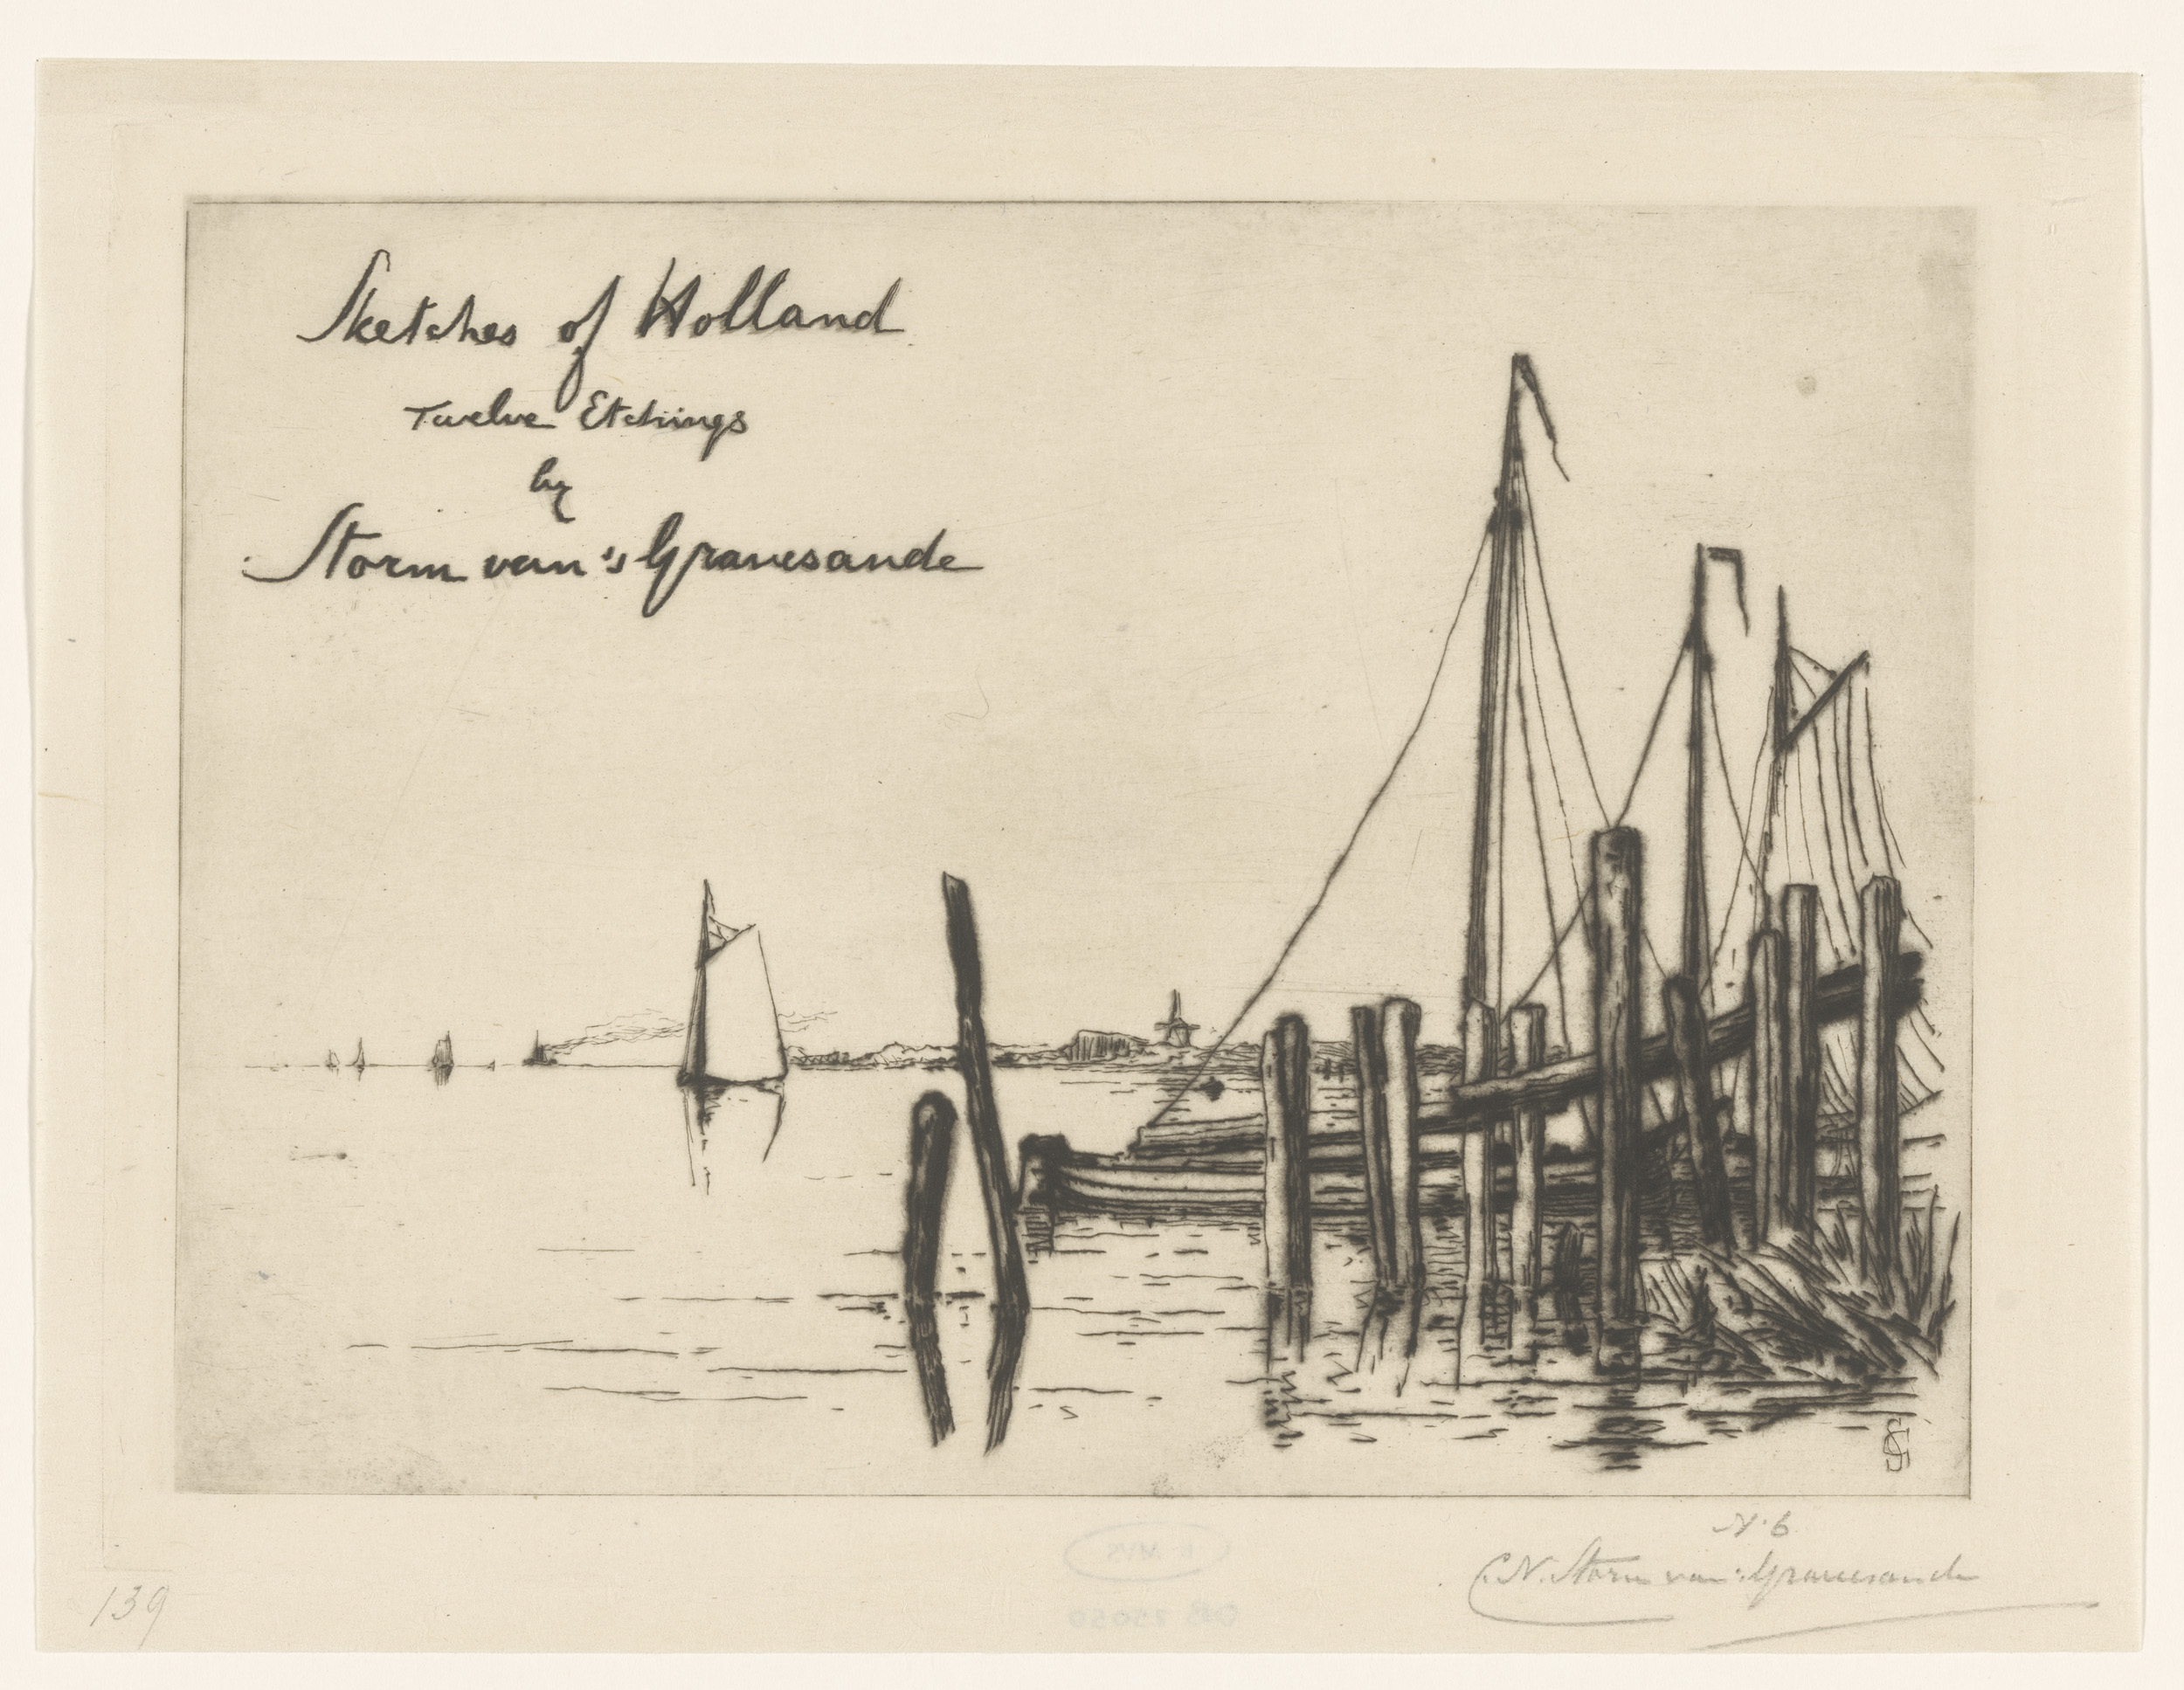 Sketches of Holland
Twelve Etchings
by
Storm van 's Gravesande
N. 6
C.N. Storm van 's Gravesande
139